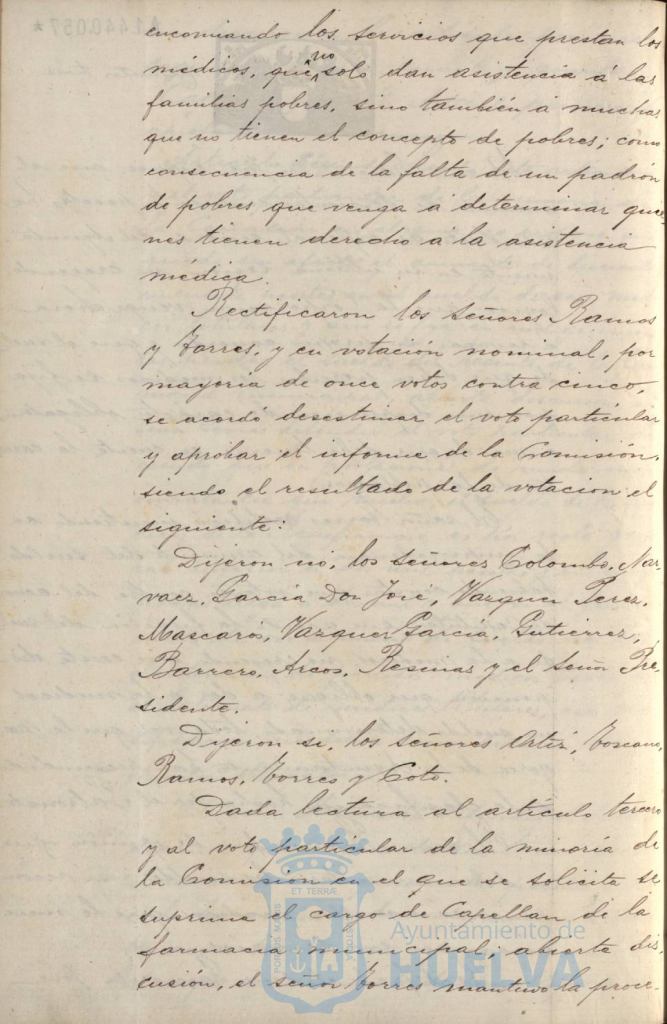 encomiando los servicios que prestan los
médicos, que no solo dan asistencia á las
familias pobres, sino también á muchas
que no tienen el concepto de pobres; como
consecuencia de la falta de un padrón
de pobres que venga á determinar quie-
nes tienen derecho á la asistencia
médica.
Rectificaron los señores Ramos
y Torres, y en votación nominal, por
mayoria de once votos contra cinco,
se acordó desestimar el voto particular
y aprobar el informe de la Comisión,
siendo el resultado de la votacion el
siguiente:
Dijeron no, los señores Colombo, Nar-
vaez, García Don José, Vazquez Perez,
Mascarós, Vazquez García, Gutierrez,
Barrero, Arcos, y el señor Pre-
sidente.
Dijeron si, los señores Ortiz, Toscano,
Ramos, Torres y Coto.
Dada lectura al artículo tercero
y al voto particular de la minoría de
la Comisión en el que se solicita se
suprima el cargo de Capellan de la
farmacia municipal; abierta dis-
cusión, el señor Torres mantuvo la proce-
Ayuntamiento de
HUELVA